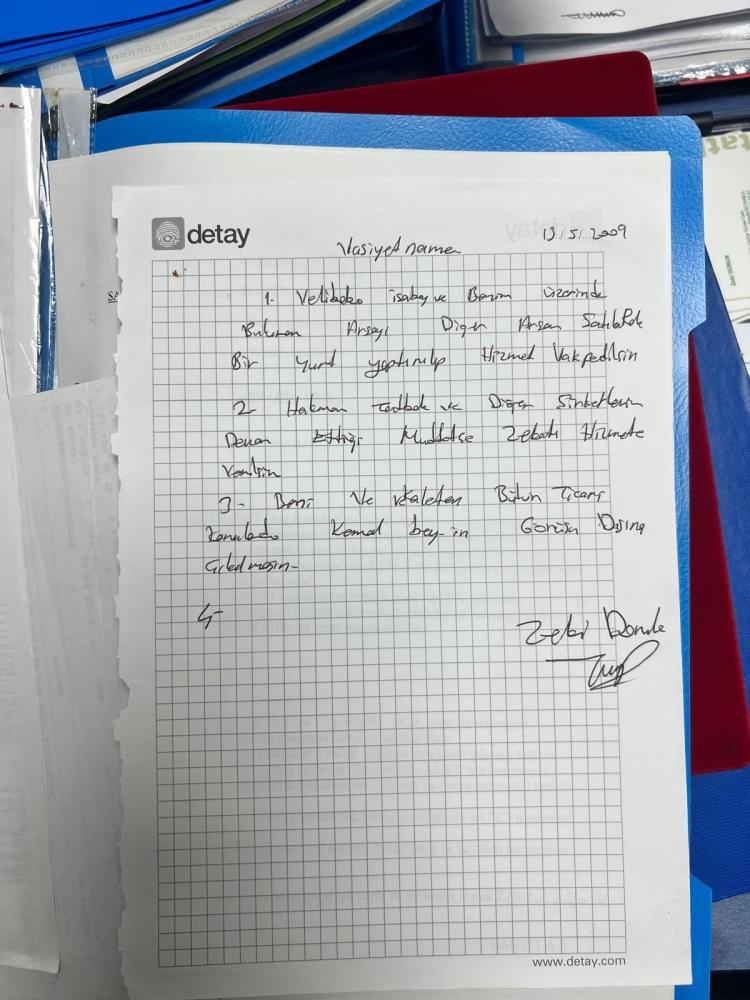 detay
Vasiyetname 19.5.2009
1. Velibaba isabey ve Benim üzerinde
Bulunan Arsayı Diğer Arsan
Bir Yurt yaptırılıp Hizmet Vakfedilsin
2- ve Diğer Şirketlerin
Devam Ettiği Müddetce Zekatı Hizmete
Verilsin
3- Beni Ve vekaleten Bütün Ticari
Konularda Kemal bey-in Görüşü Dışına
Çıkılmasın-
4-
Zeki
www.detay.com